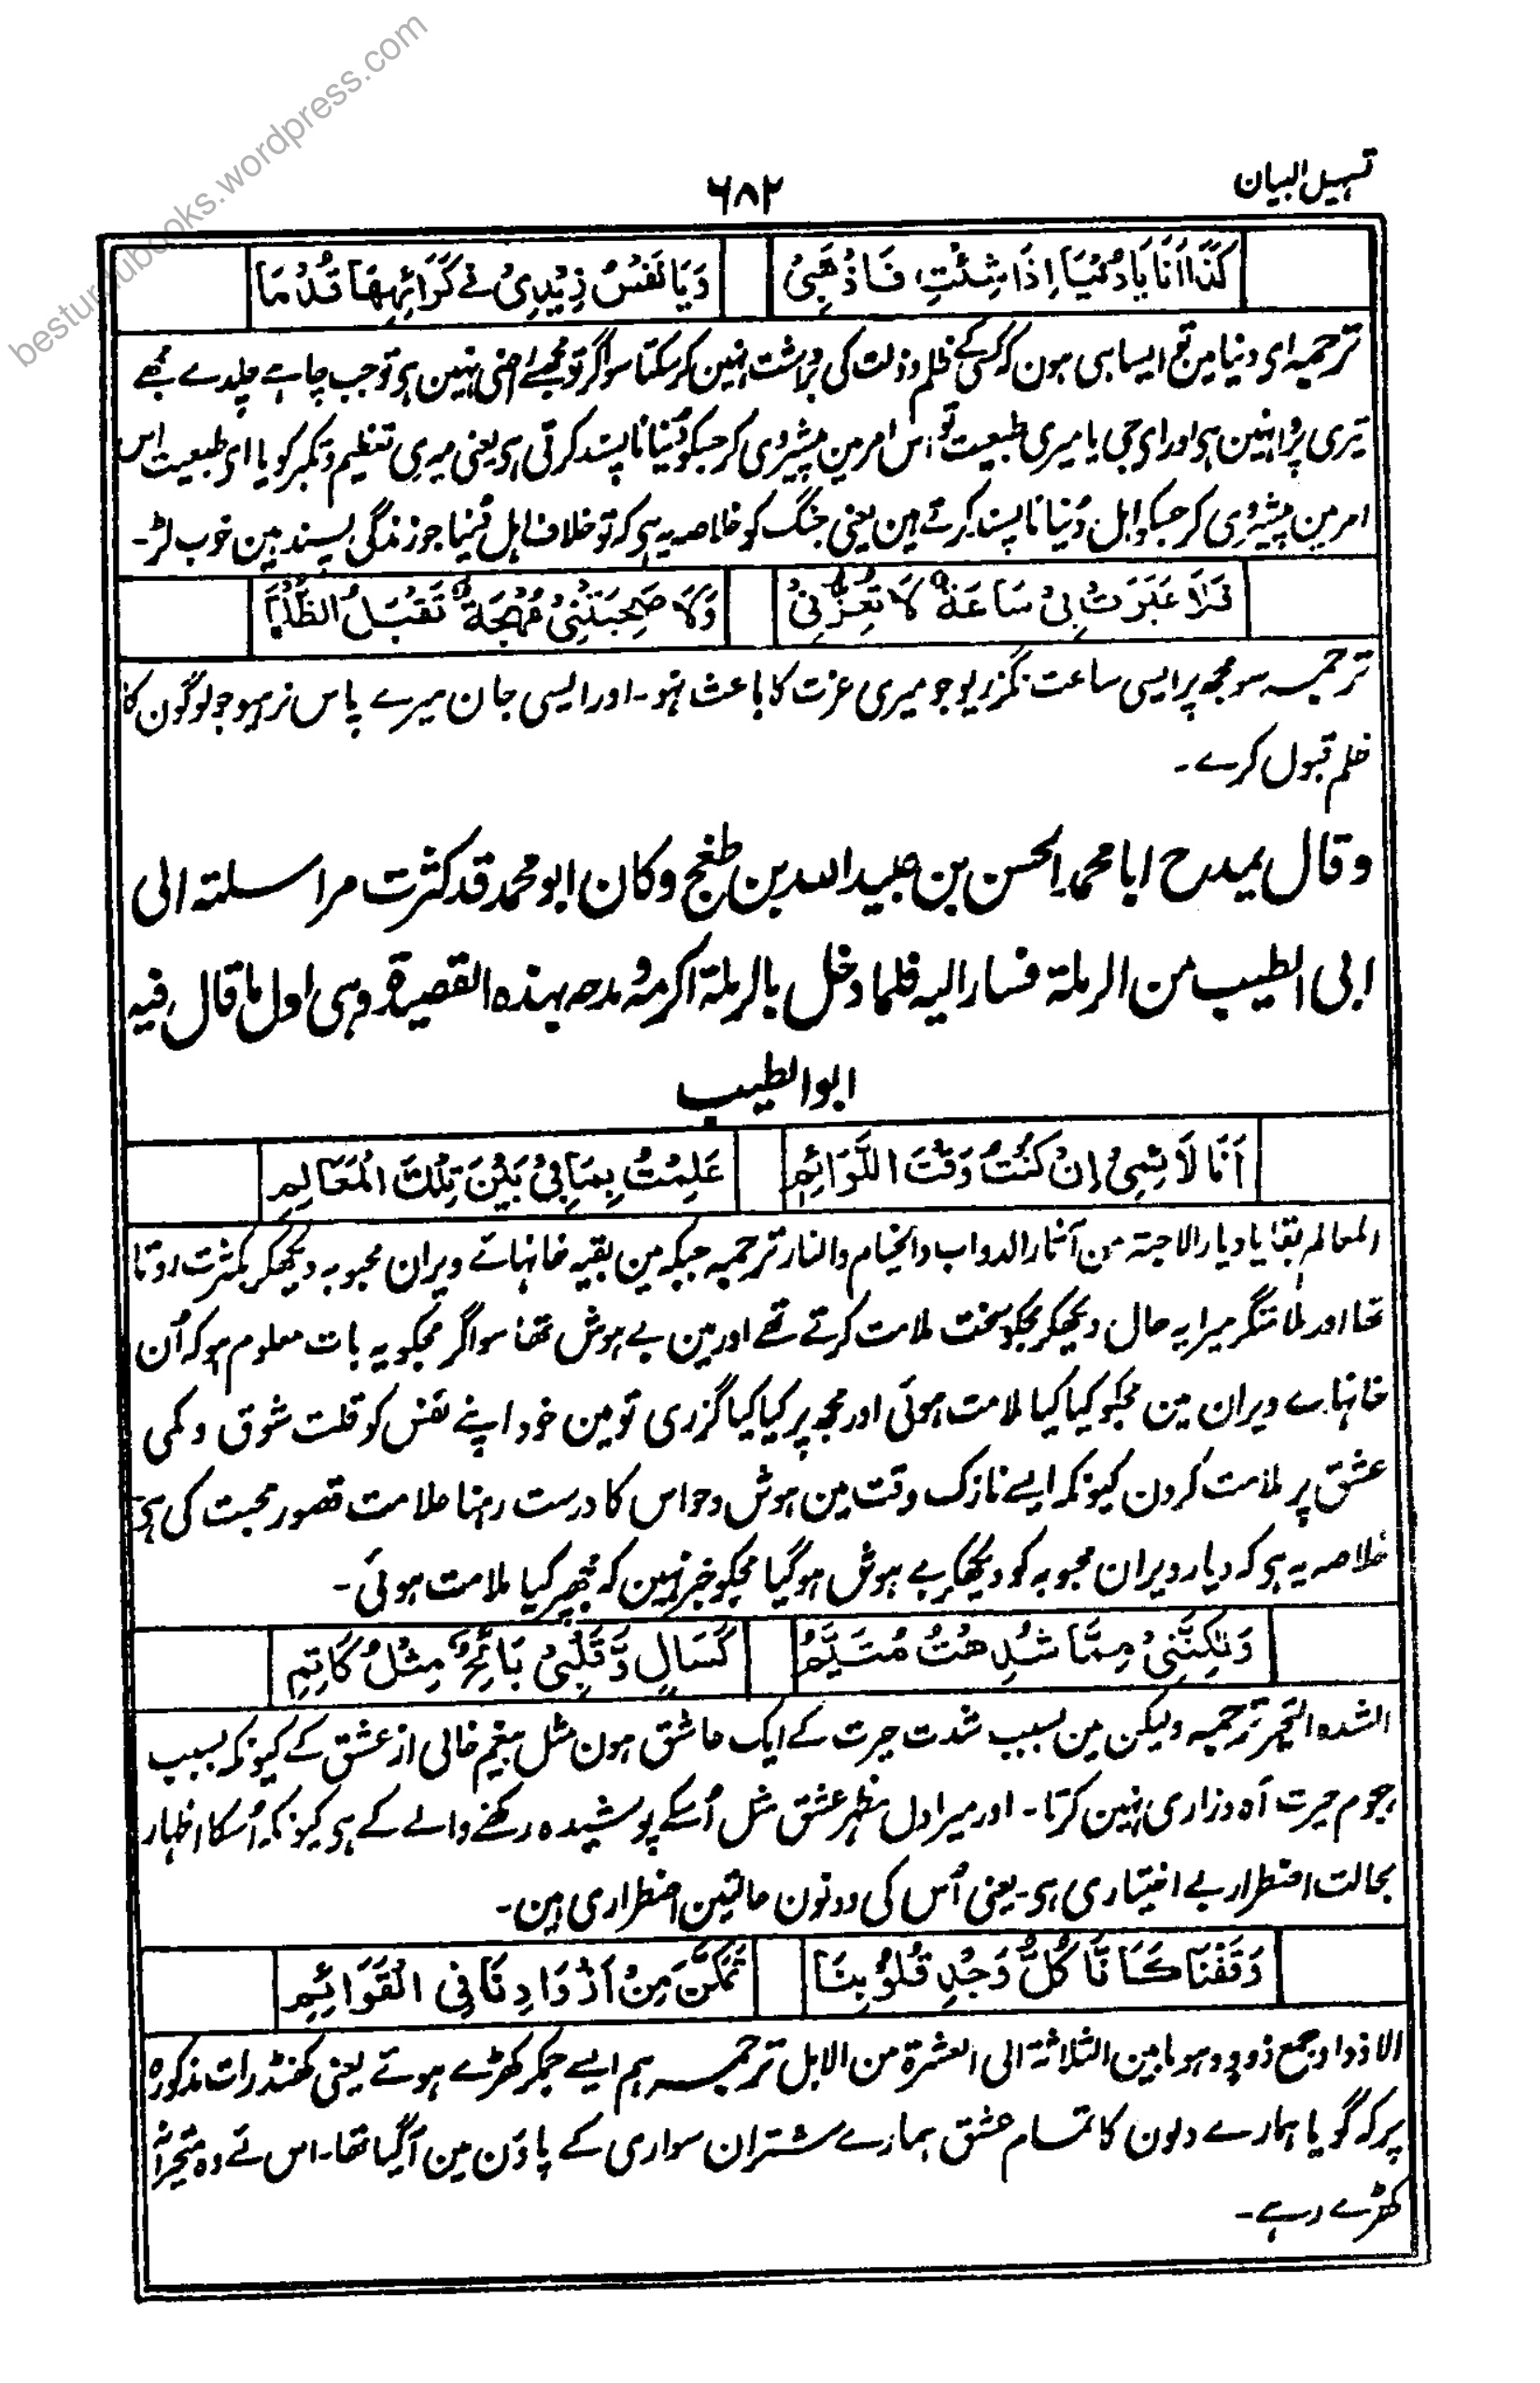 تسہیل البیان
۶۸۲
كَذَا اَنَا يَا دُنْيَا اِذَا شِئْتِ فَاذْهَبِيْ وَيَا نَفْسُ زِيْدِيْ فِي كَرَائِهِهَا قُدْمَا
ترجمہ ای دنیا مین تو ایسا ہی ہون کہ کسی کے ظلم و ذلت کی برداشت نہین کر سکتا سو اگر تو مجھسے راضی نہین ہی تو جب چاہے چلدے مجھے
تیری پروا نہین ہی اور ای جی یا میری طبیعت تو اس امر مین پیشروی کر جسکو دنیا ناپسند کرتی ہی یعنی میری تنظیم و تکبر کو یا ای طبیعت اس
امر مین پیشروی کر جسکو اہل دُنیا ناپسند کرتے ہین یعنی جنگ کو خلاصہ یہ ہی کہ تو خلاف اہل دُنیا جو زندگی پسند ہین خوب لڑ۔
فَلَا عَبَرَتْ بِيْ سَاعَةٌ لَا تُعِزُّنِيْ وَلَا صَحِبَتْنِيْ مُهْجَةٌ تَقْبَلُ الظُّلْمَا
ترجمہ سو مجھ پر ایسی ساعت نگزریو جو میری عزت کا باعث نہو۔ اور ایسی جان میرے پاس نرہیو جو لوگون کا
ظلم قبول کرے۔
وقال یمدح ابا محمد الحسن بن عبید اللہ بن طغج وکان ابو محمد قد کثرت مراسلتہ الی
ابی الطیب من الرملۃ فسار الیہ فلما دخل بالرملۃ اکرمہ و مدحہ بہذہ القصیدۃ وہی اول ما قال فیہ
ابو الطیب
اَنَا لَائِمِيْ اِنْ كُنْتُ وَقْتَ اللَّوَائِمِ عَلِمْتُ بِمَا بِيْ بَيْنَ تِلْكَ الْمَعَالِمِ
المعالم بقایا دیار الاحبۃ من آثار الدواب والخیام والنار ترجمہ جبکہ مین بقیہ خانہائے ویران محبوبہ دیکھکر بکثرت روتا
تھا اور ملامتگر میرا یہ حال دیکھکر مجکو سخت ملامت کرتے تھے اور مین بے ہوش تھا سو اگر مجکو یہ بات معلوم ہو کہ اُن
خانہاے ویران مین مجکو کیا کیا ملامت ہوئی اور مجھ پر کیا کیا گزری تو مین خود اپنے نفس کو قلت شوق و کمی
عشق پر ملامت کرون کیونکہ ایسے نازک وقت مین ہوش و حواس کا درست رہنا علامت قصور محبت کی ہی۔
خلاصہ یہ ہی کہ دیار ویران محبوبہ کو دیکھکر بے ہوش ہوگیا مجکو خبر نہین کہ مجھپر کیا ملامت ہوئی۔
وَلٰكِنَّنِيْ مِمَّا شُدِهْتُ مُتَيَّمٌ كَسَالٍ وَّقَلْبِيْ بَائِحٌ مِثْلُ كَاتِمِ
الشدہ التحیر ترجمہ ولیکن مین بسبب شدت حیرت کے ایک عاشق ہون مثل بیغم خالی از عشق کے کیونکہ بسبب
ہجوم حیرت آہ و زاری نہین کرتا۔ اور میرا دل مظہر عشق مثل اُسکے پوشیدہ رکھنے والے کے ہی کیونکہ اُسکا اظہار
بحالت اضطرار بے اختیاری ہی۔ یعنی اُس کی دونون حالتین اضطراری ہین۔
وَقَفْنَا كَاَنَّا كُلُّ وَجْدِ قُلُوْبِنَا تَمَكَّنَ مِنْ اَذْوَادِنَا فِي الْقَوَائِمِ
الاذواد جمع ذود وہو ما بین الثلاثۃ الی العشرۃ من الابل ترجمہ ہم ایسے جمکر کھڑے ہوئے یعنی کھنڈرات مذکورہ
پر کہ گویا ہمارے دلون کا تمام عشق ہمارے شتران سواری کے پاؤن مین آگیا تھا۔ اس لئے وہ متحیرانہ
کھڑے رہے۔
besturdubooks.wordpress.com